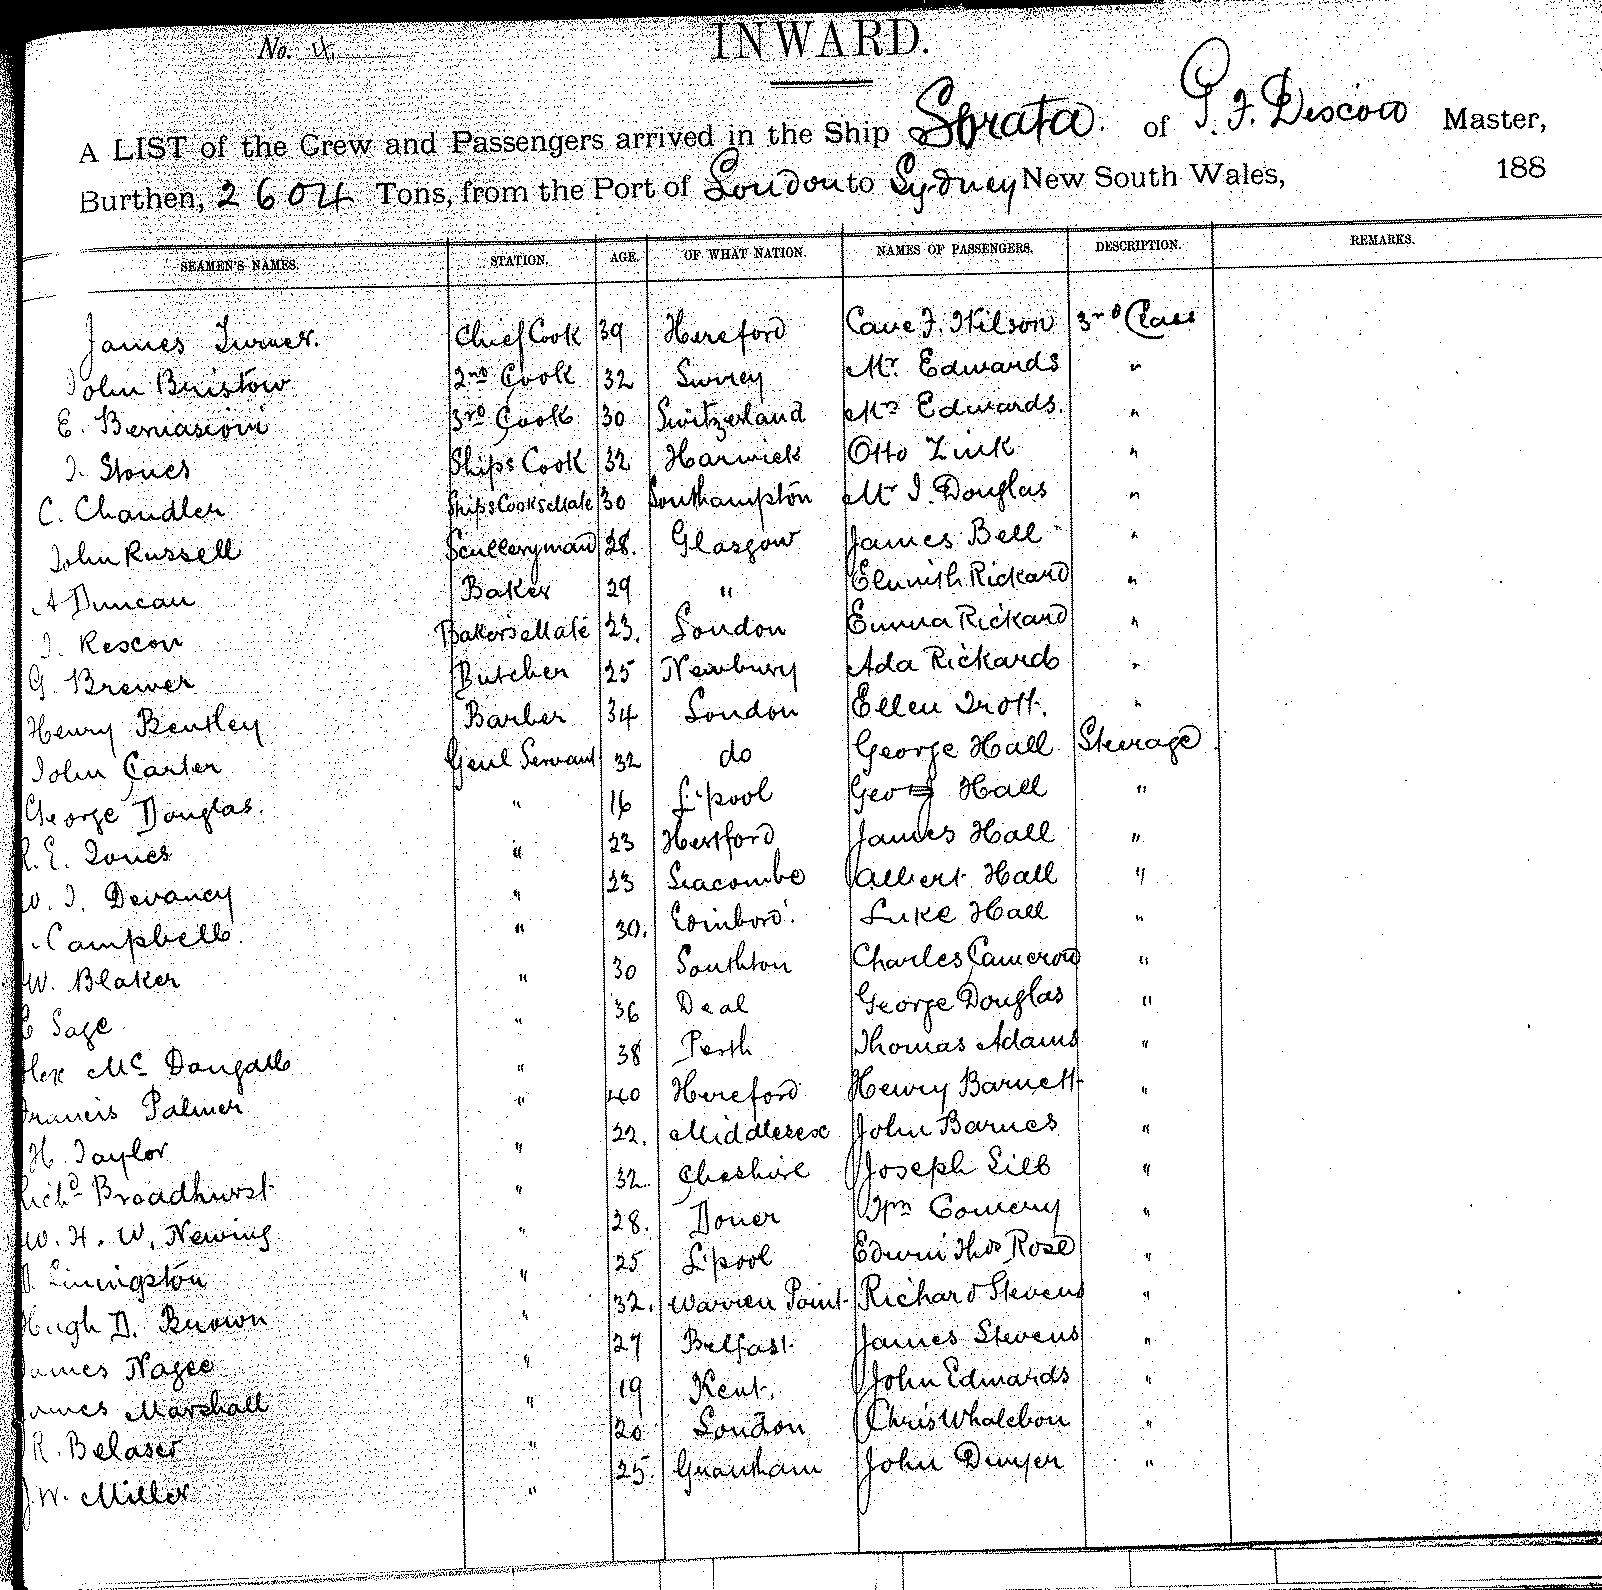 No. 4.
INWARD.
A LIST of the Crew and Passengers arrived in the Ship Sorata. of P. F. Descow Master,
Burthen, 2604 Tons, from the Port of London to Sydney New South Wales, 188
SEAMEN'S NAMES. STATION. AGE. OF WHAT NATION. NAMES OF PASSENGERS. DESCRIPTION. REMARKS.
James Turner. Chief Cook 39 Hereford Cave F. Wilson 3rd Class
John Bristow 2nd Cook 32 Surrey Mr. Edwards "
E. Bernasioni 3rd Cook 30 Switzerland Mrs Edwards. "
J. Stones Ships Cook 32 Harwick Otto Zink "
C. Chandler Ships Cooks Mate 30 Southampton Mr J. Douglas "
John Russell Sculleryman 28. Glasgow James Bell "
A Duncan Baker 29 " Rickard "
J. Rescon Bakers Mate 23. London Emma Rickard "
G. Brewer Butcher 25 Newbury Ada Rickard "
Henry Bentley Barber 34 London Ellen Trott. "
John Carter Genl Servant 32 do George Hall Steerage
George Douglas. " 16 L'pool Geo Hall "
R. E. Jones " 23 Hertford James Hall "
W. J. Devancy " 23 Seacombe Albert Hall "
Campbell. " 30. Edinboro'. Luke Hall "
W. Blaker " 30 Southton Charles Cameron "
E Sage " 36 Deal George Douglas "
Alex McDougall " 38 Perth Thomas Adams "
Francis Palmer " 40 Hereford Henry Barnett "
H. Taylor " 22. Middlesex John Barnes "
Richd Broadhurst " 32. Cheshire Joseph Lilb "
W. H. W. Newing " 28. Dover Wm Gomery "
Livingston " 25 L'pool Edwin Thos Rose "
Hugh D. Brown " 32. Warren Point Richard Stevens "
James Nagee " 27 Belfast. James Stevens "
James Marshall " 19 Kent. John Edwards "
R. Belaser " 20 London Chris Whalebon "
J. W. Miller " 25. Grantham John Dwyer "